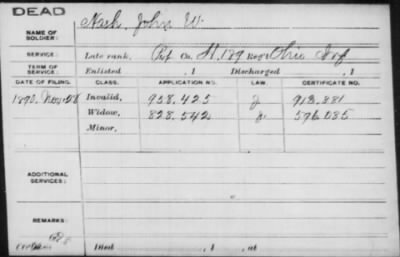 DEAD
NAME OF SOLDIER: Nash, John W.
SERVICE: Late rank, Pvt Co. H, 189 Reg't Ohio Inf
TERM OF SERVICE: Enlisted , 1 Discharged , 1
DATE OF FILING. CLASS. APPLICATION NO. LAW. CERTIFICATE NO.
1890, Nov. 28 Invalid, 958.425 J 913.881
Widow, 828.542 596.085
Minor,
ADDITIONAL SERVICES:
REMARKS:
Died , 1 , at